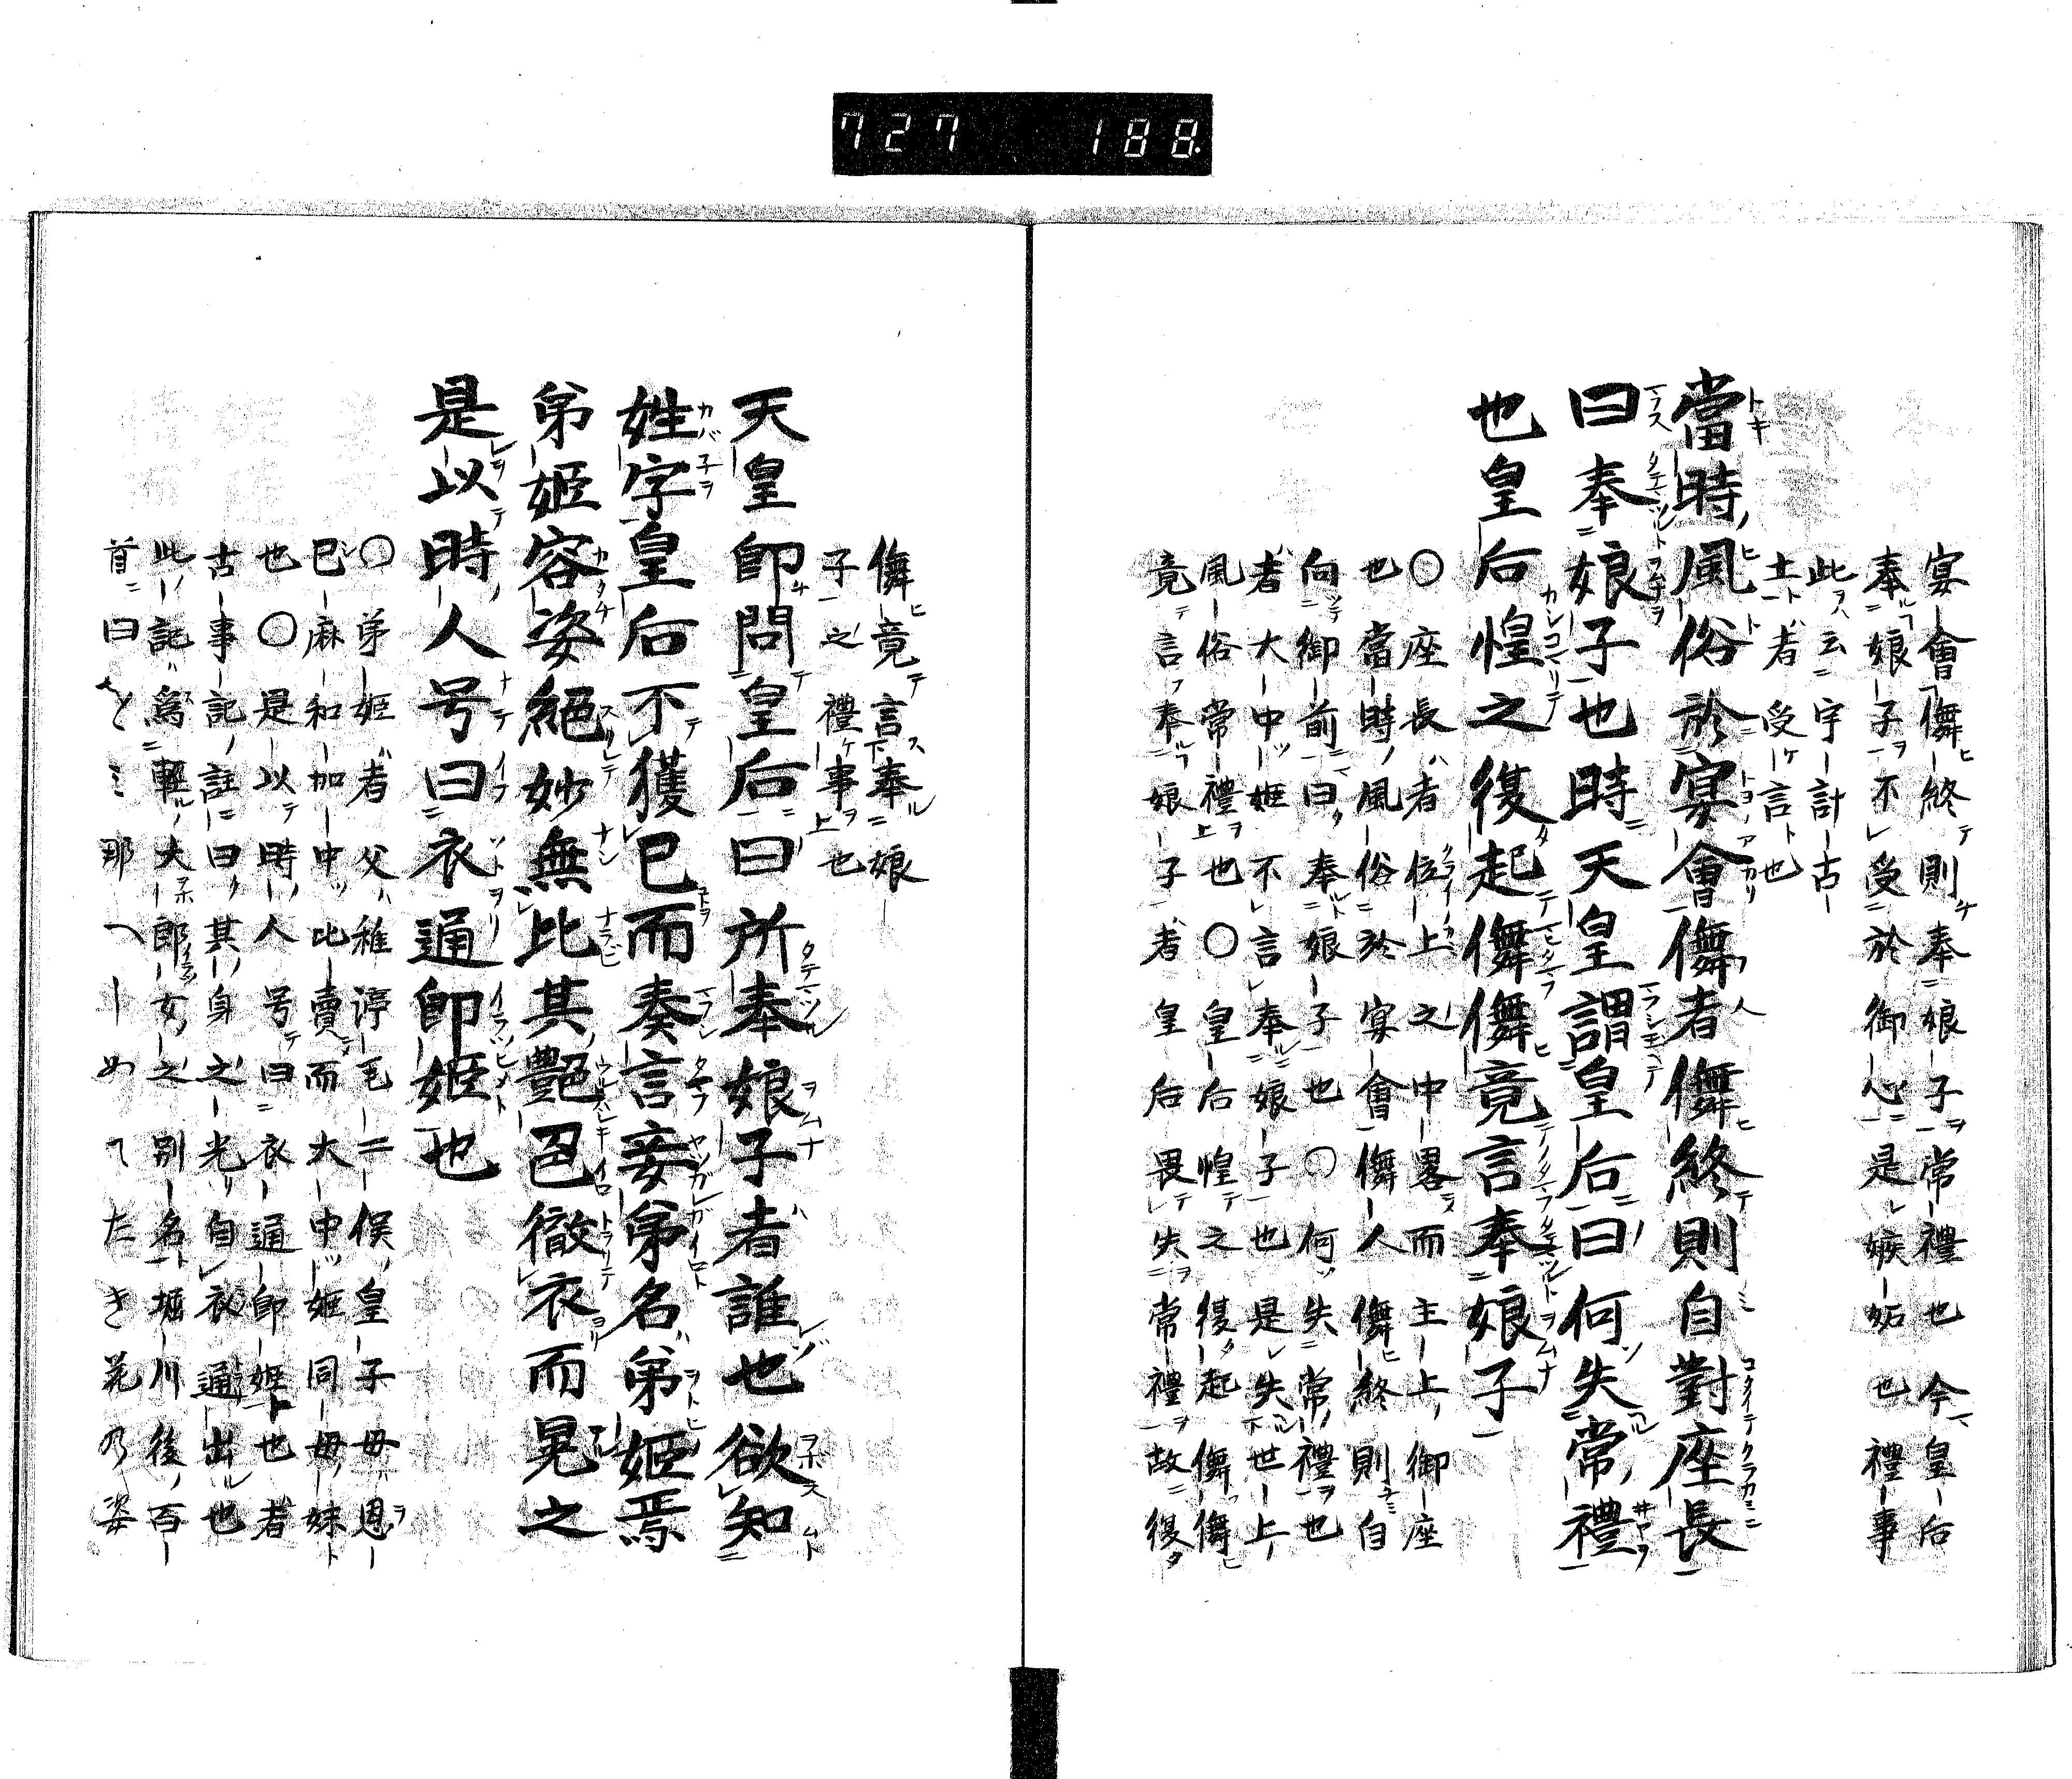 727 188
宴會儛終則奉娘子常禮也今皇后
奉娘子不受於御心是嫉妬也禮事
此云宇計古
土者受言也
當時風俗於宴會儛者儛終則自對座長
曰奉娘子也時天皇謂皇后曰何失常禮
也皇后惶之復起儛儛竟言奉娘子
〇座長者位上之中畧而主上御座
也當時風俗於宴會儛人儛終則自
向御前曰奉娘子也〇何失常禮也
者大中姬不言奉娘子也是失世上
風俗常禮也〇皇后惶之復起儛儛
竟言奉娘子者皇后畏失常禮故復
儛竟言奉娘
子之禮事也
天皇即問皇后曰所奉娘子者誰也欲知
姓字皇后不獲已而奏言妾弟名弟姬焉
弟姬容姿絕妙無比其艷色徹衣而晃之
是以時人号曰衣通郎姬也
〇弟姬者父稚渟毛二俣皇子母恩
巳麻和加中比賣而大中姬同母妹
也〇是以時人号曰衣通郎姬也者
古事記註曰其身之光自衣通出也
此記為輕大郎女之別名堀川後百
首曰をとみ那へしめてたき花乃姿